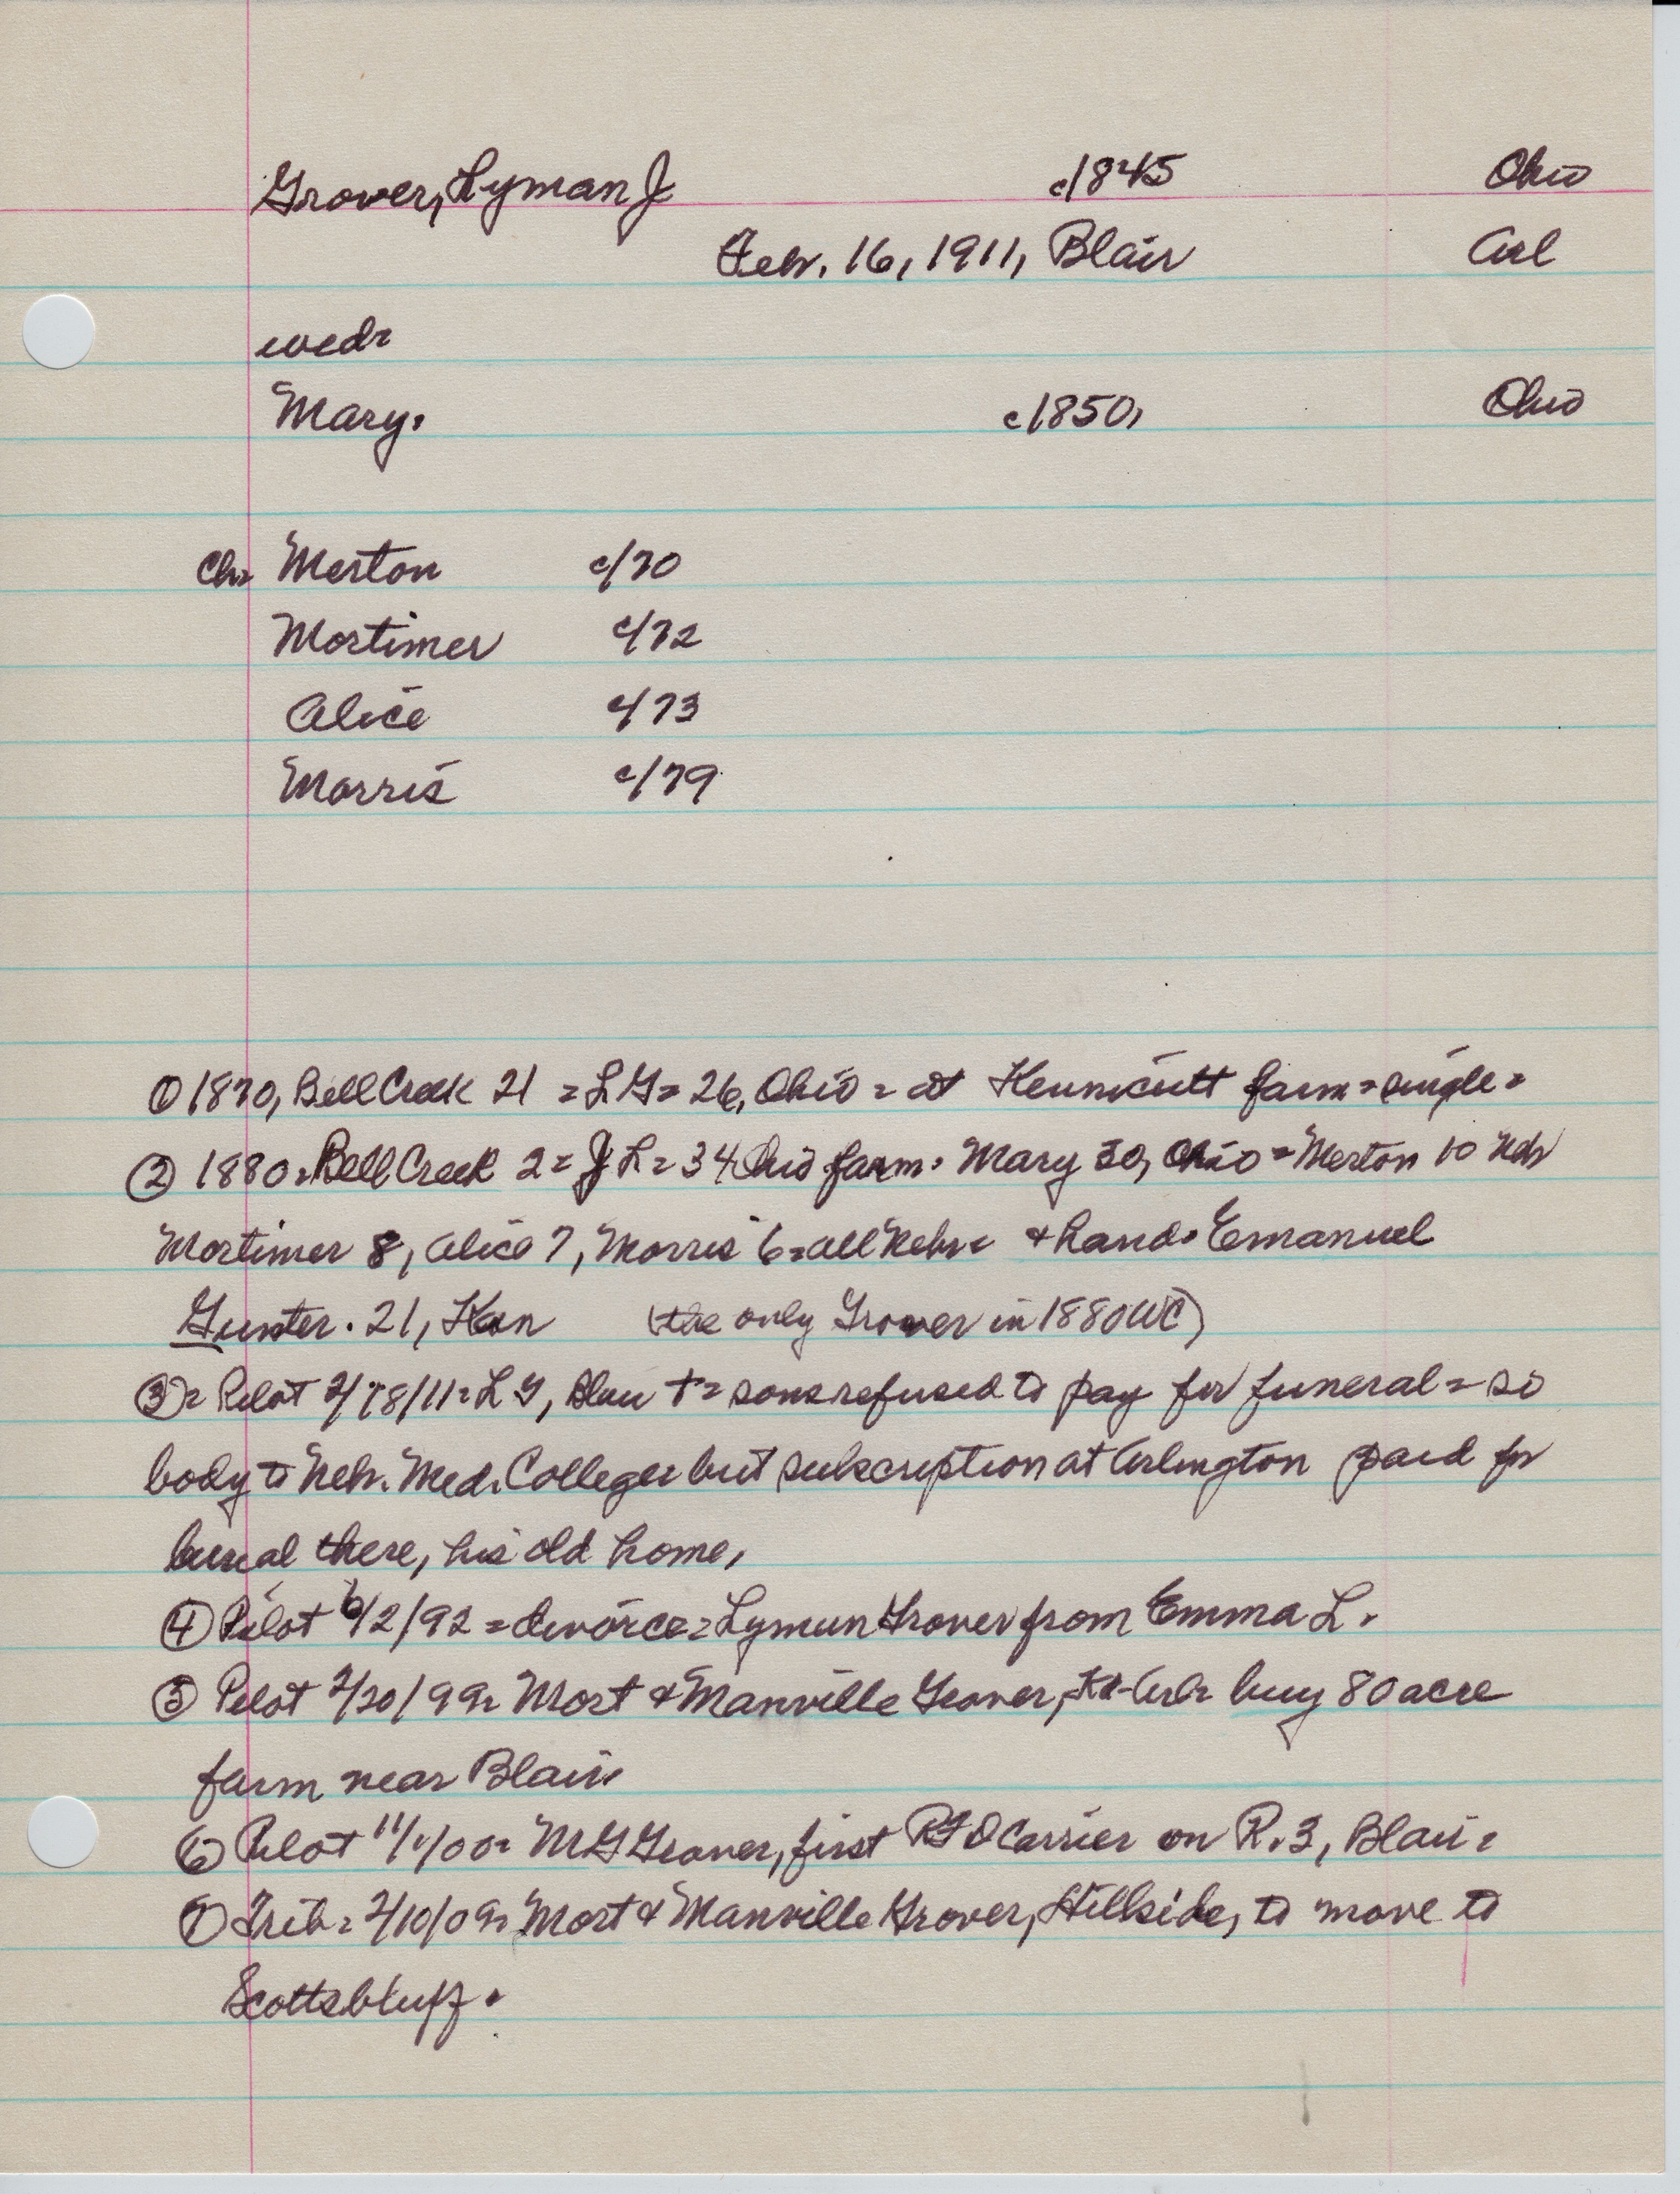 Grover, Lyman J c1845 Ohio
Feb. 16, 1911, Blair Arl
wed=
Mary. c1850, Ohio
Ch= Merton c/70
Mortimer c/72
Alice c/73
Morris c/79
① 1870, Bell Creek 21 = L G = 26, Ohio = at Kennicutt farm = single =
② 1880 = Bell Creek 2 = J L = 34 Ohio farm. Mary 30, Ohio = Merton 10 Neb
Mortimer 8, Alice 7, Morris 6 = all Neb = + hand. Emanuel
Gunter. 21, Kan (the only Grover in 1880 WC)
③ = Pilot 2/18/11 = L G, Blair † = sons refused to pay for funeral = so
body to Neb. Med. College = but subscription at Arlington paid for
burial there, his old home,
④ Pilot 6/2/92 = divorce = Lyman Grover from Emma L.
⑤ Pilot 2/20/99 = Mort & Manville Grover, Arl = buy 80 acre
farm near Blair.
⑥ Pilot 11/1/00 = M G Grover, first RFD Carrier on R. 3, Blair =
⑦ Trib = 2/10/09 = Mort & Manville Grover, Hillside, to move to
Scottsbluff.